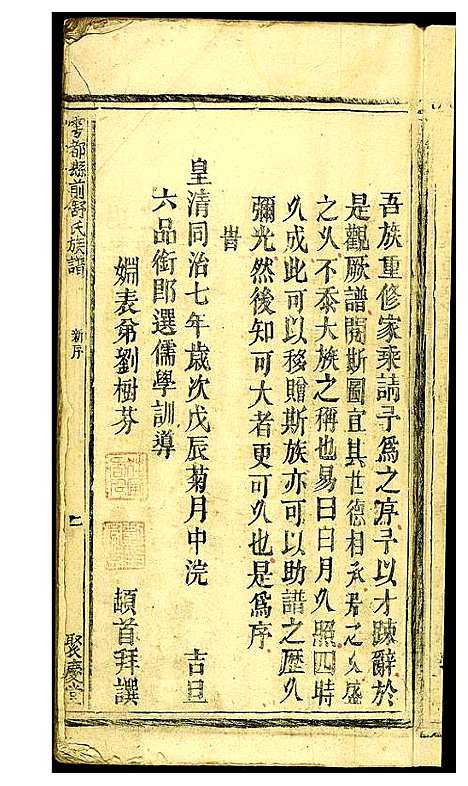 吾族重修家乘請予為之序予以才疎辭於
是觀厥譜閱斯圖宜其世德相承若之久盛
之久不忝大族之稱也易曰日月久照四時
久成此可以移贈斯族亦可以助譜之歷久
彌光然後知可大者更可久也是為序
旹
皇清同治七年歲次戊辰菊月中浣 吉旦
六品銜即選儒學訓導
姻表弟劉樹芬 頓首拜譔
雩都縣前舒氏族譜 新序 聚慶堂